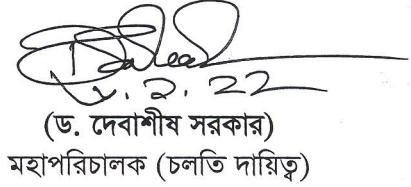 (ড. দেবাশীষ সরকার)
মহাপরিচালক (চলতি দায়িত্ব)